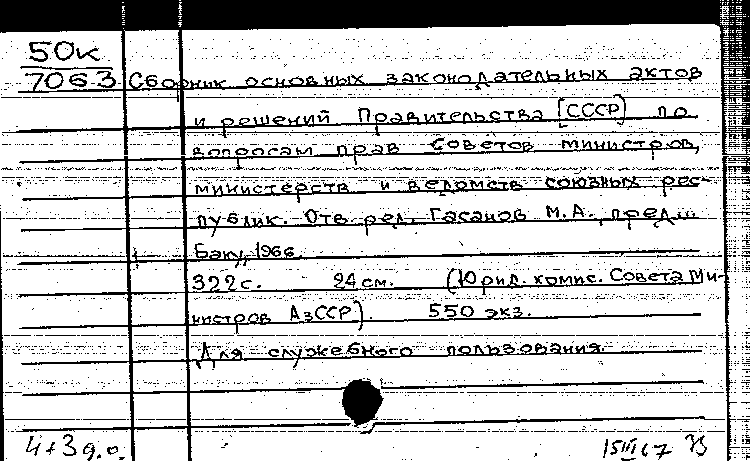 50к
7063 Сборник основных законодательных актов
и решений Правительства [СССР] по
вопросам прав Советов министров,
министерств и ведомств союзных рес-
публик. Отв. ред. Гасанов М.А., пред...
Баку, 1966.
322 с. 24 см. (Юрид. комис. Совета Ми-
нистров АзССР). 550 экз.
Для служебного пользования.
4+3 д.о. 15 III 67